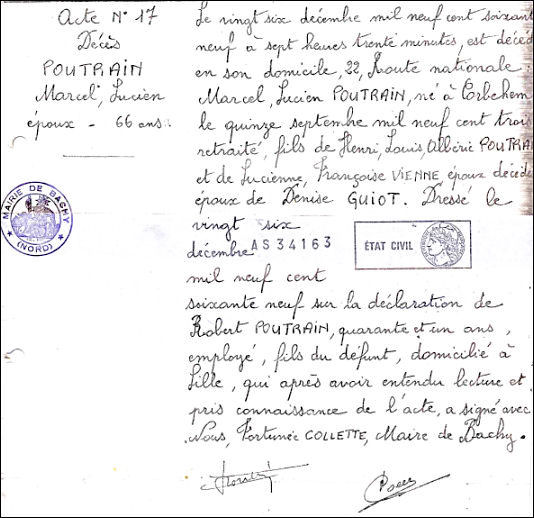 Acte N° 17
Décès
POUTRAIN
Marcel, Lucien
époux - 66 ans.
MAIRIE DE BACHY
(NORD)
Le vingt six décembre mil neuf cent soixant
neuf à sept heures trente minutes, est décéd
en son domicile, 22, Route nationale :
Marcel Lucien POUTRAIN, né à Corbehem
le quinze septembre mil neuf cent trois
retraité, fils de Henri, Louis, Albéric POUTRA
et de Lucienne, Françoise VIENNE, époux décéd
époux de Denise GUIOT. Dressé le
vingt six
décembre AS34163
ÉTAT CIVIL
mil neuf cent
soixante neuf sur la déclaration de
Robert POUTRAIN, quarante et un ans,
employé, fils du défunt, domicilié à
Lille, qui après avoir entendu lecture et
pris connaissance de l'acte, a signé avec
Nous, Fortunée COLLETTE, Maire de Bachy.